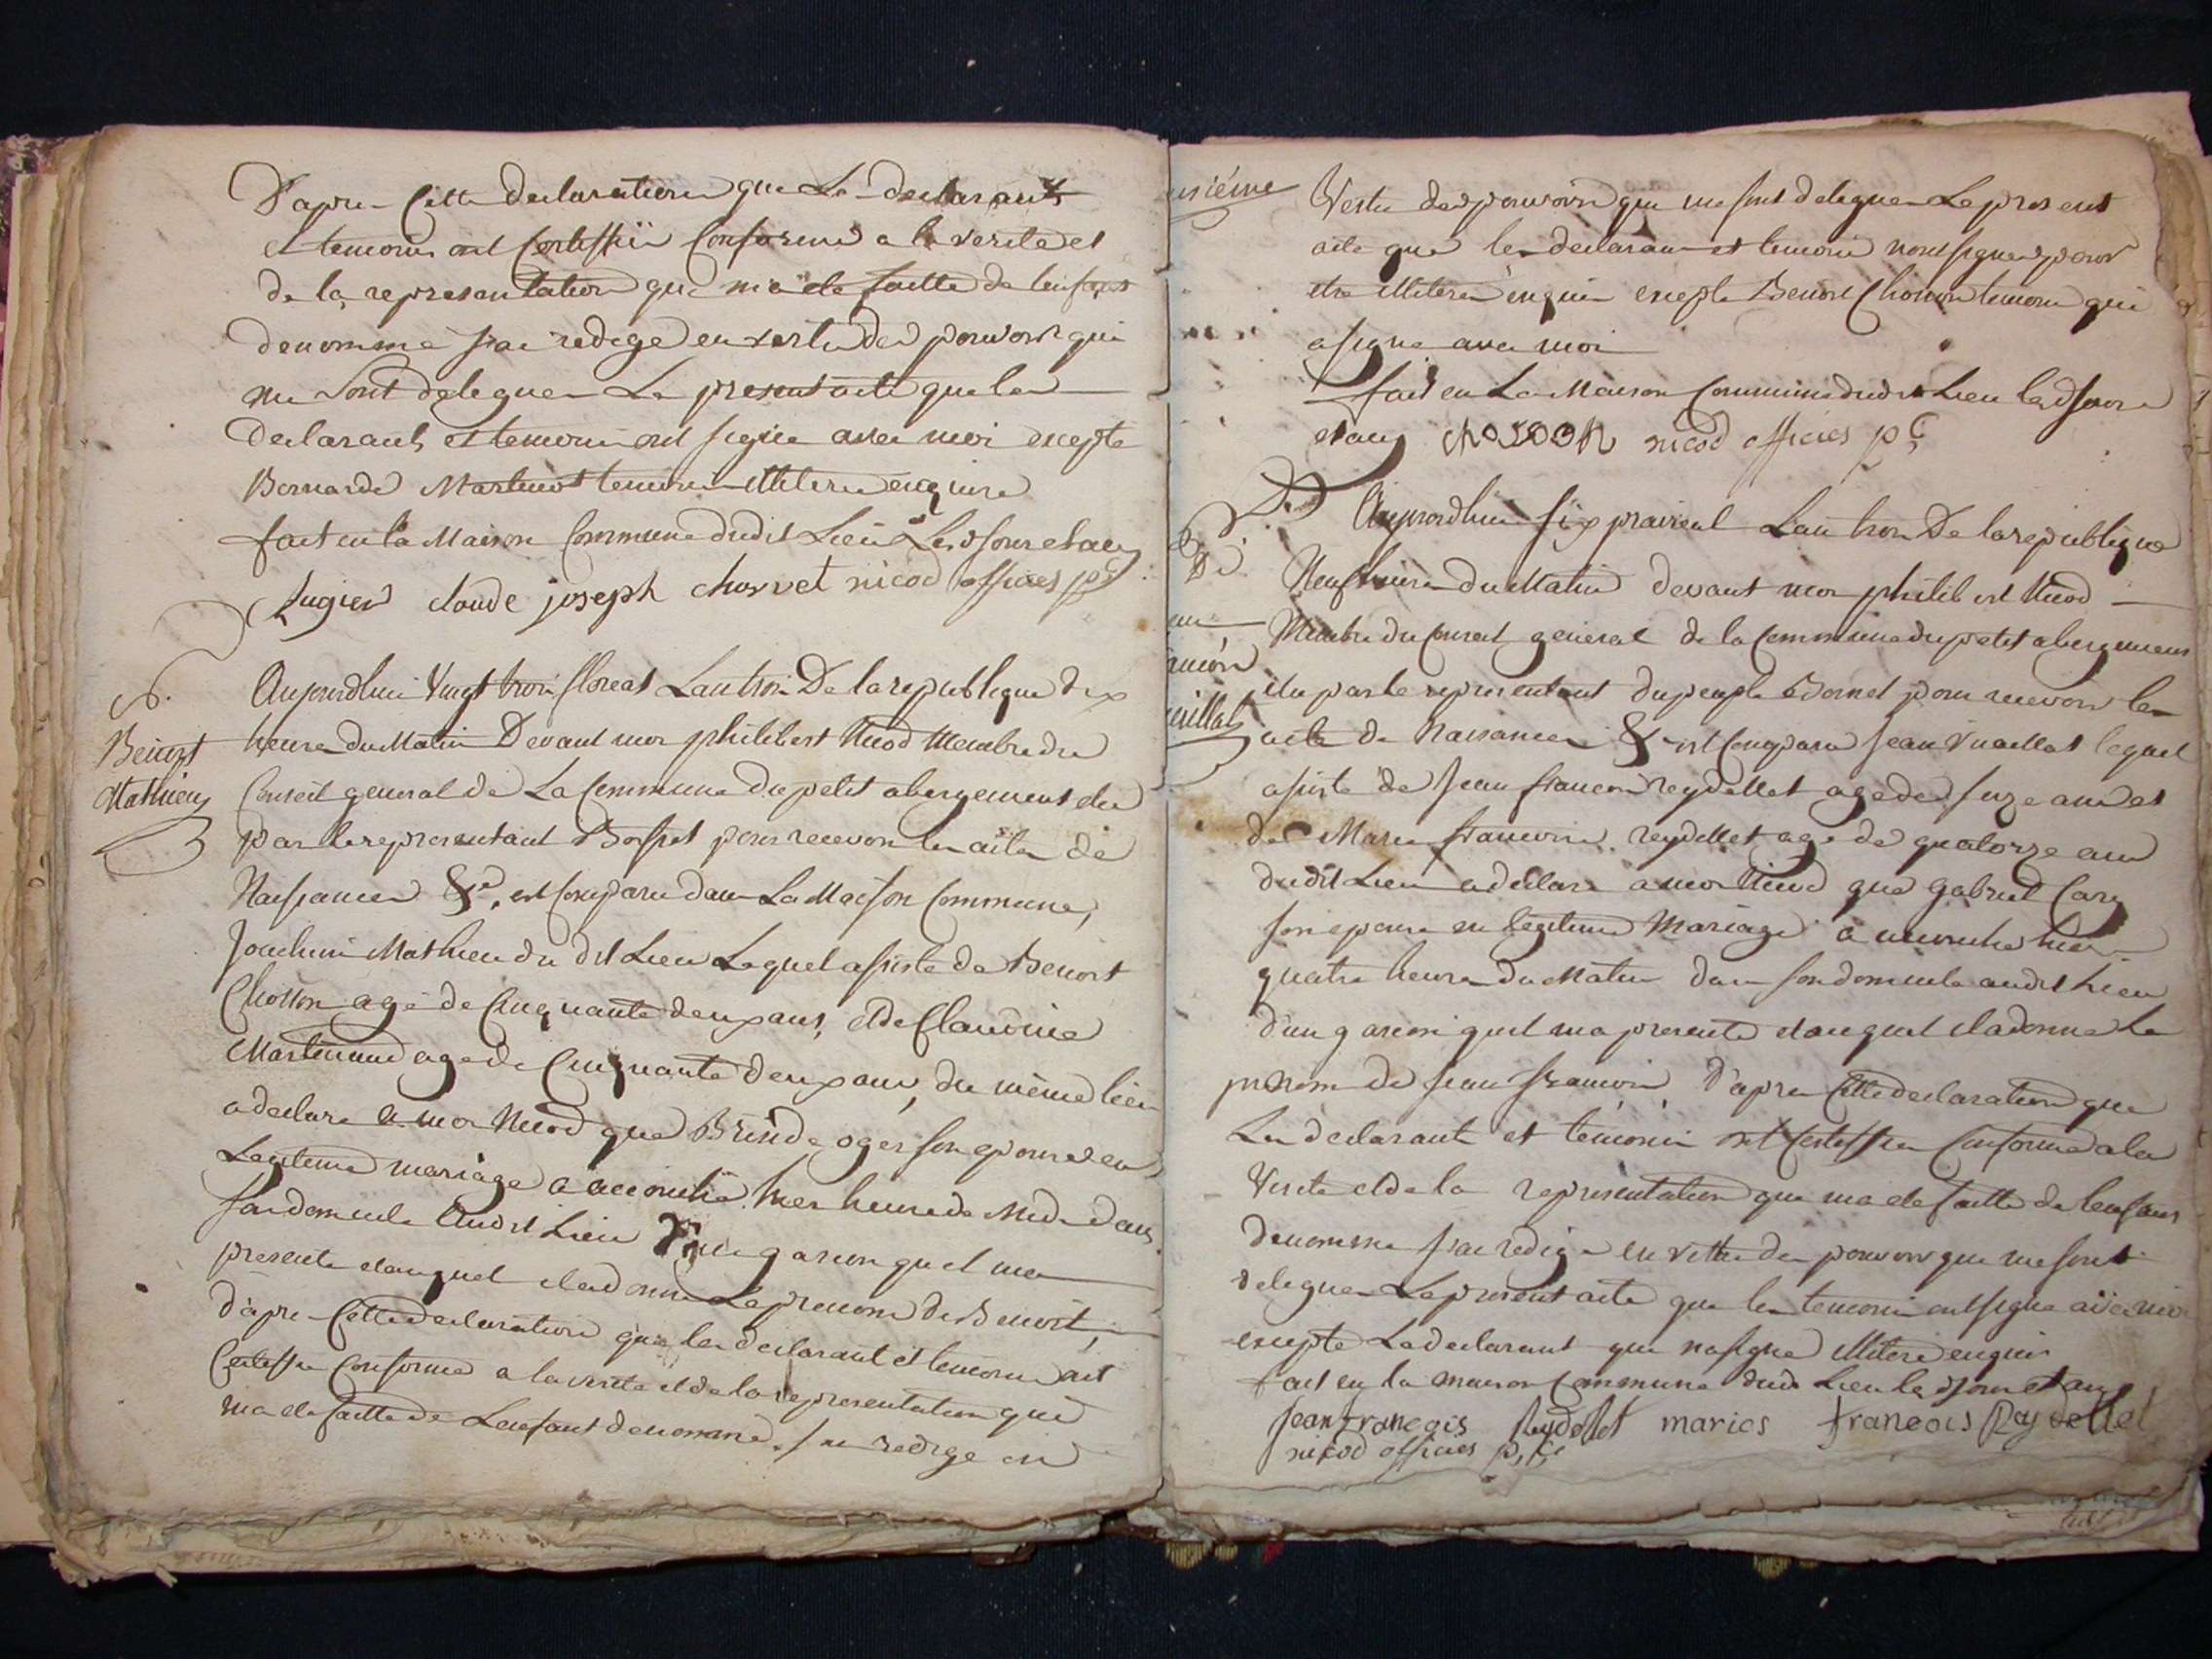 D'apre Cette declaration que Le declarant
et temoins ont Certiffiée Conforme a la verité et
de la representation qui m'a ete faitte de lenfant
denommé J'ai redigé en vertu des pouvoirs qui
me sont deleguer Le present acte que les
declarants et temoins ont signé avec moi excepté
Bernarde Martinot temoin illiteré enquise
fait en la Maison Commune dudit Lieu Les d jour et an
Lugier claude joseph chorvet nicod officies pc
N.
Benoist
Mathieu
Aujourdhui vingt trois floreal Lan trois De la republique dix
heure du Matin Devant moi philibert Nicod Membre du
Conseil general de La Commune du petit abergement elu
par le representant Boisset pour recevoir les actes de
Naissances &c, est Comparu dans La Maison Commune,
Joachim Mathieu du dit Lieu Lequel assisté de Benoit
Chosson agé de Cinquante deux ans, et de Claudine
Martinand agé de Cinquante deux ans, du même lieu
a declaré a moi Nicod que Brinde oger son epouse en
Legitime mariage a accouché hier heure de Midi dans
son domicile Audit Lieu D'un garcon quel ma
presenté et auquel il a donné Le prenom de Benoit,
D'apre Cette declaration que les declarant et temoins ont
Certiffié Conforme a la verité et de la representation qui
ma ete faitte de Lenfant denommé. J'ai redigé en
usiéme
Vertu des pouvoirs qui me sont deleguer Le present
acte que les declarant et temoin nont signés pour
etre illiteré enquis excepté Benoit Chosson temoin qui
a signé avec moi
fait en La Maison Commune dudit Lieu les d jour
et an chosson nicod officies pc
N.
ancois
uillat
Aujourdhui six prairial Lan trois De la republique
Neuf heure du Matin devant moi philibert Nicod
Membre du Conseil general de la Commune du petit abergement
elu par le representant du peuple Bornet pour recevoir les
acte de Naissances &c est Comparu Jean Vuaillat lequel
assisté de Jean francois reydellet agé de seize ans et
de Marie francoise reydellet agé de quatorze ans
dudit Lieu a declaré a moi Nicod que gabriel Cary
son epouse en legitime Mariage a accouché hier
quatre heure du Matin dans son domicile audit Lieu
d'un garcon quil ma presenté et auquel il a donné Le
prenom de Jean francois, D'apre Cette declaration que
Les declarants et témoins ont Certiffiée Conforme a la
Verité et de la representation qui ma ete faitte de lenfant
denommé J'ai redigé en vertu des pouvoirs qui me sont
deleguer Le present acte que les temoins ont signé avec moi
excepté Le declarant qui na signé illiteré enquis
fait en la maison Commune dudit Lieu les d jour et an
jean francois Reydelet maries francois Reydellet
nicod officies pc